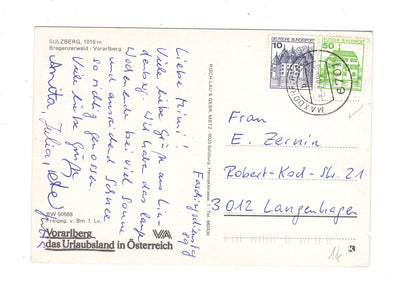 SULZBERG, 1015 m
Bregenzerwald - Vorarlberg
Faschingsdienstag
Liebe Mimi!
Viele liebe Grüße aus Lin-
denberg. Wir haben das lange
Wochenende bei viel Sonne
und ausreichend Schnee
so richtig genossen.
Viele liebe Grüße
Anita, Julia,
BW 50568
Freigeg. v. Bm. f. Lv.
Vorarlberg
das Urlaubsland in Österreich
VVA
RISCH-LAU & GEBR. METZ
10
DEUTSCHE BUNDESPOST
50
DEUTSCHE BUNDESPOST
6701
MAXDORF
Frau
E. Zernin
Robert-Koch-Str. 21
3012 Langenhagen